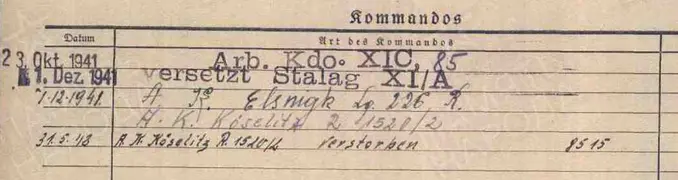 Kommandos
Datum Art des Kommandos
23. Okt. 1941 Arb. Kdo. XIC, 85
1. Dez. 1941 versetzt Stalag XI/A
1.12.1941 A K. Elsnigk Lg. 226 R.
A. K. Köselitz R 1520/2
31.5.43 A.K. Köselitz R. 1520/2 verstorben 8515